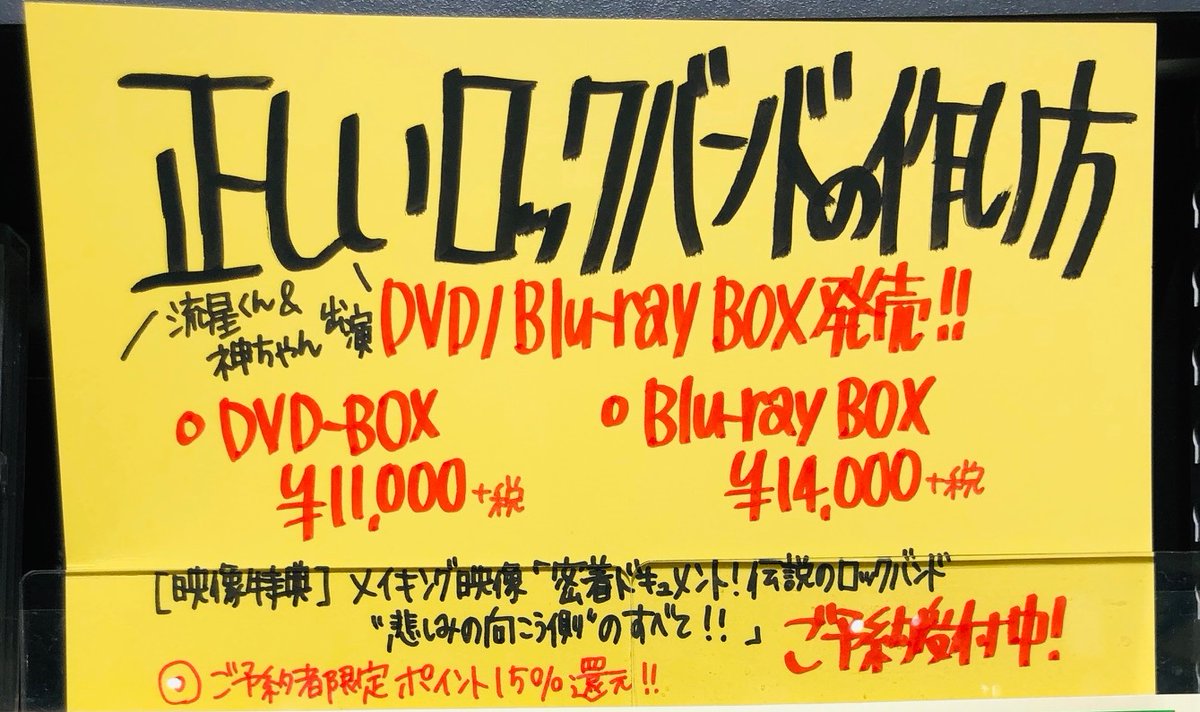 正しいロックバンドの作り方
流星くん&
神ちゃん 出演
DVD/Blu-ray BOX発売!!
○ DVD-BOX
¥11,000+税
○ Blu-ray BOX
¥14,000+税
[映像特典] メイキング映像「密着ドキュメント!伝説のロックバンド
"悲しみの向こう側"のすべて!!」
ご予約受付中!
◎ ご予約者限定 ポイント15%還元!!